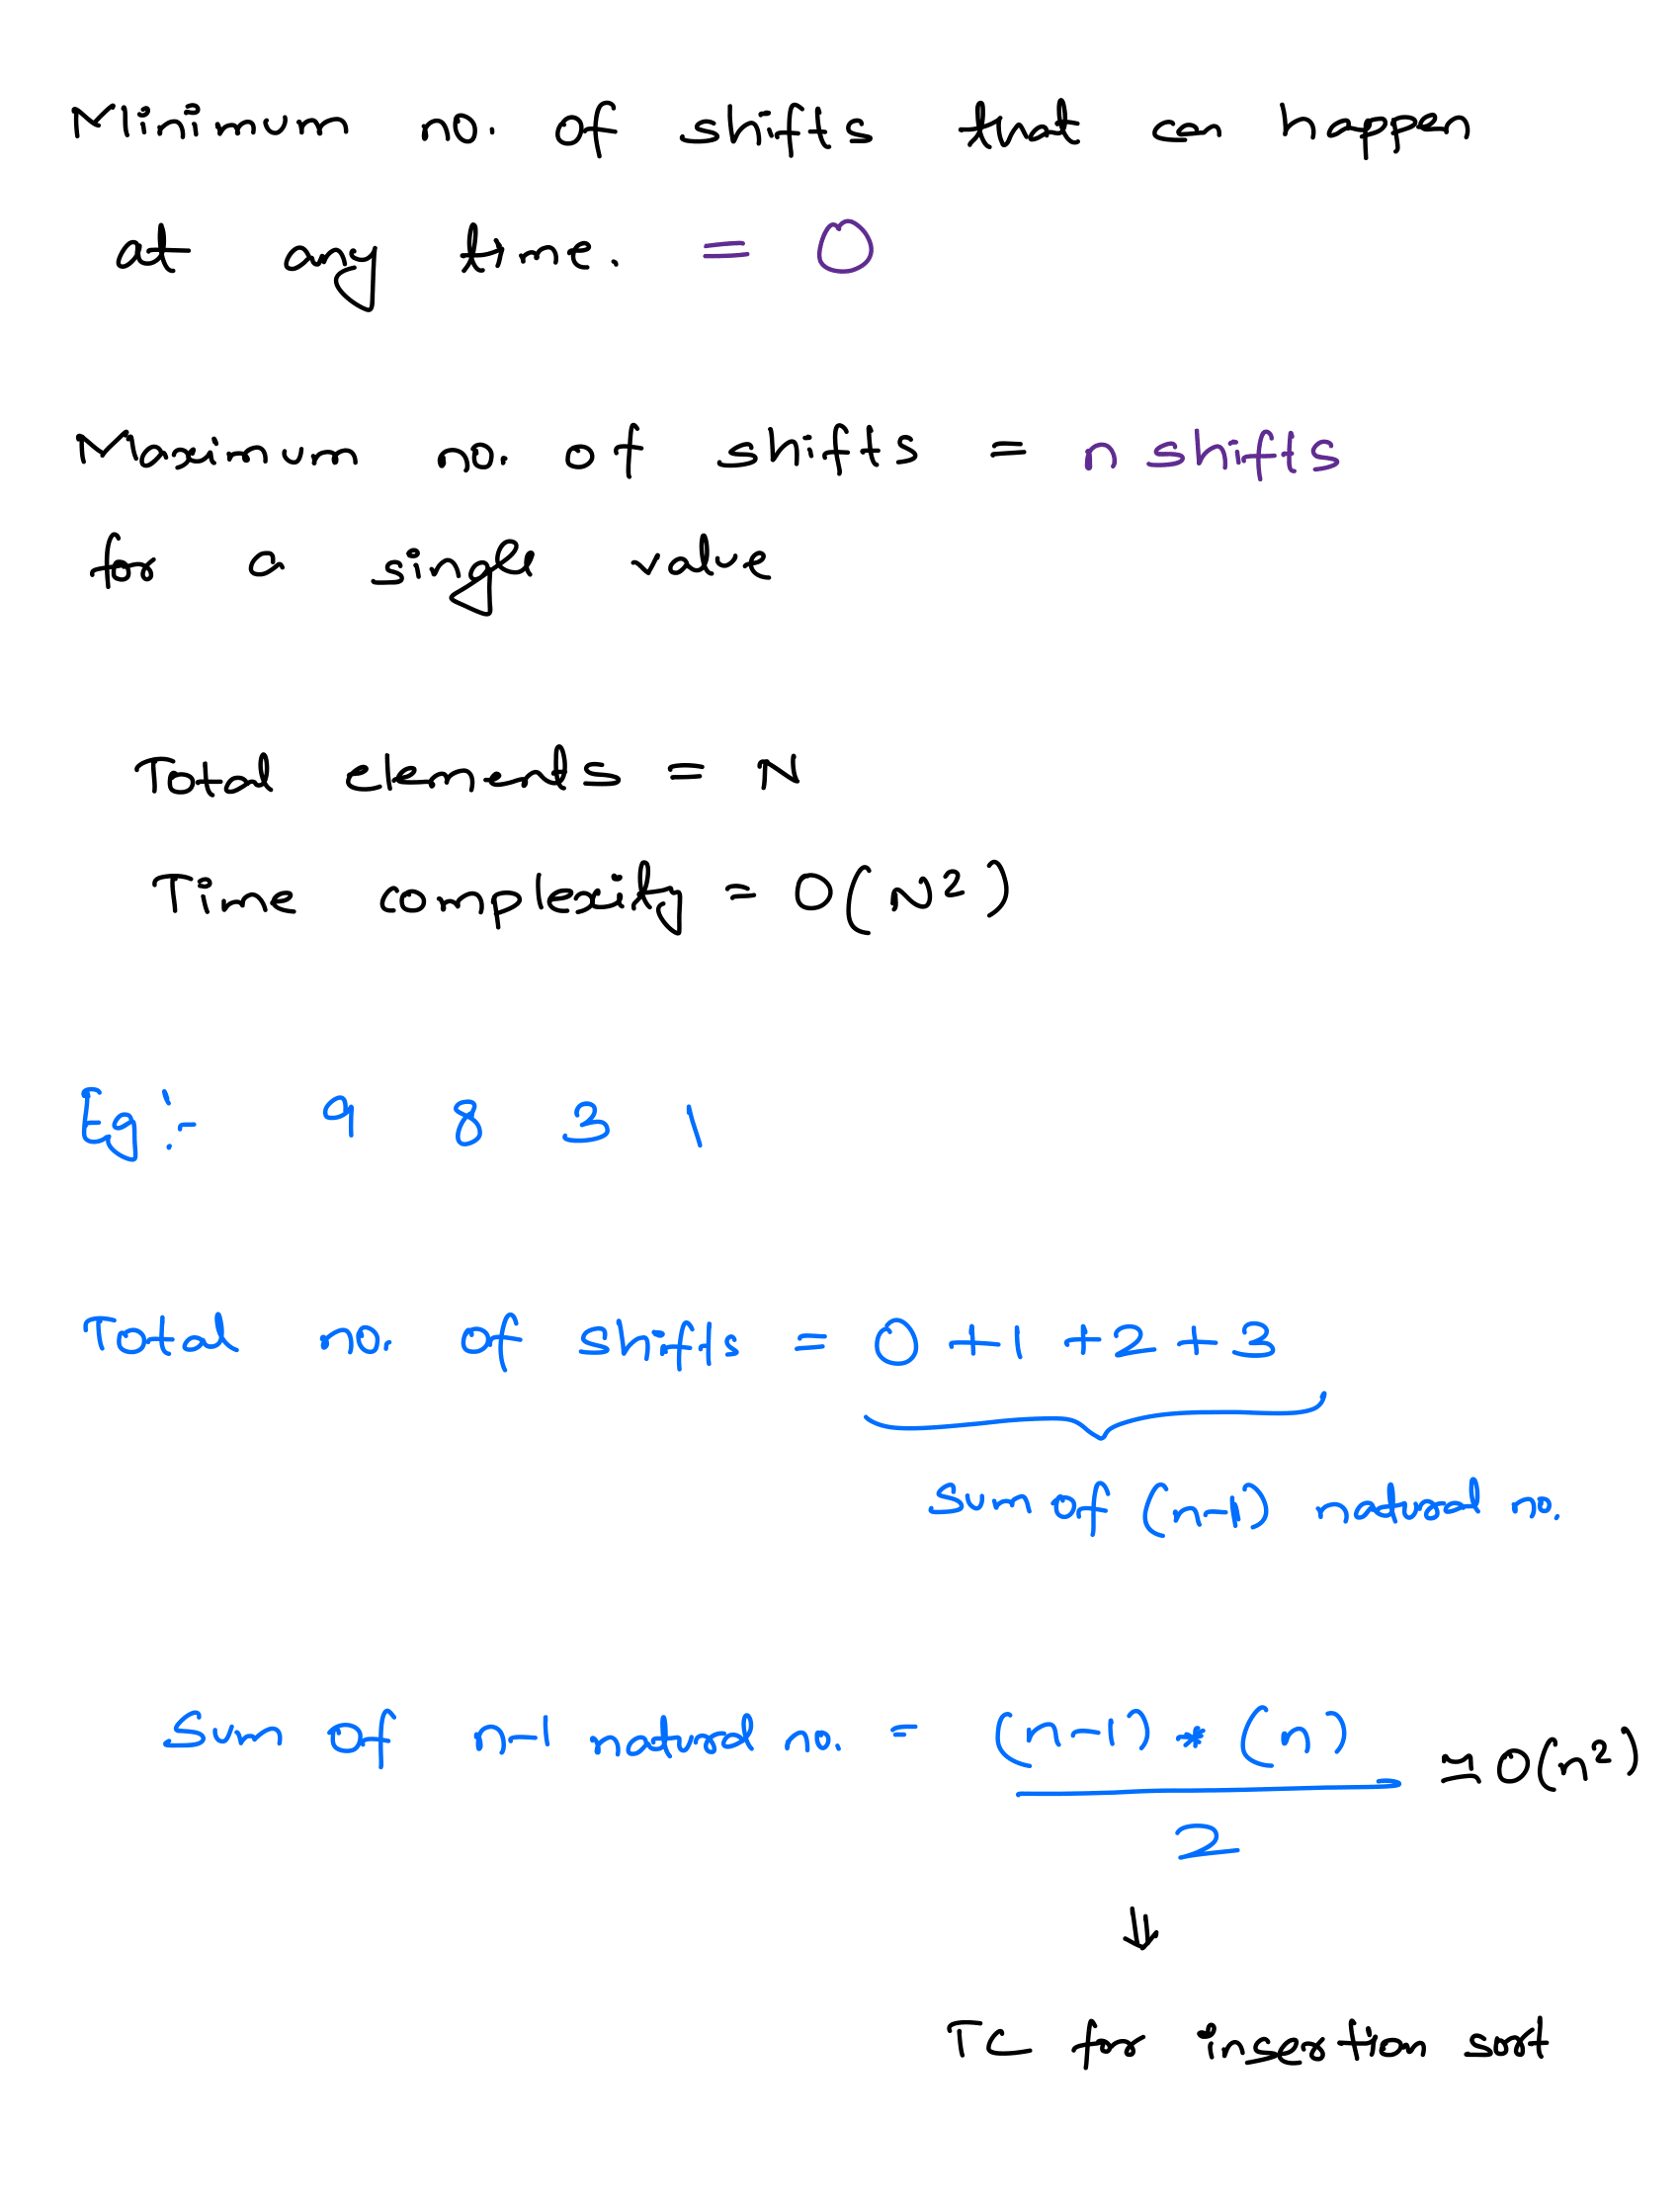 Minimum no. of shifts that can happen
at any time. = 0
Maximum no. of shifts = n shifts
for a single value
Total elements = N
Time complexity = O(N²)
Eg :- 9 8 3 1
Total no. of shifts = 0 + 1 + 2 + 3
Sum of (n-1) natural no.
Sum of n-1 natural no. = (n-1) * (n) / 2 ≃ O(n²)
⇓
TC for insertion sort